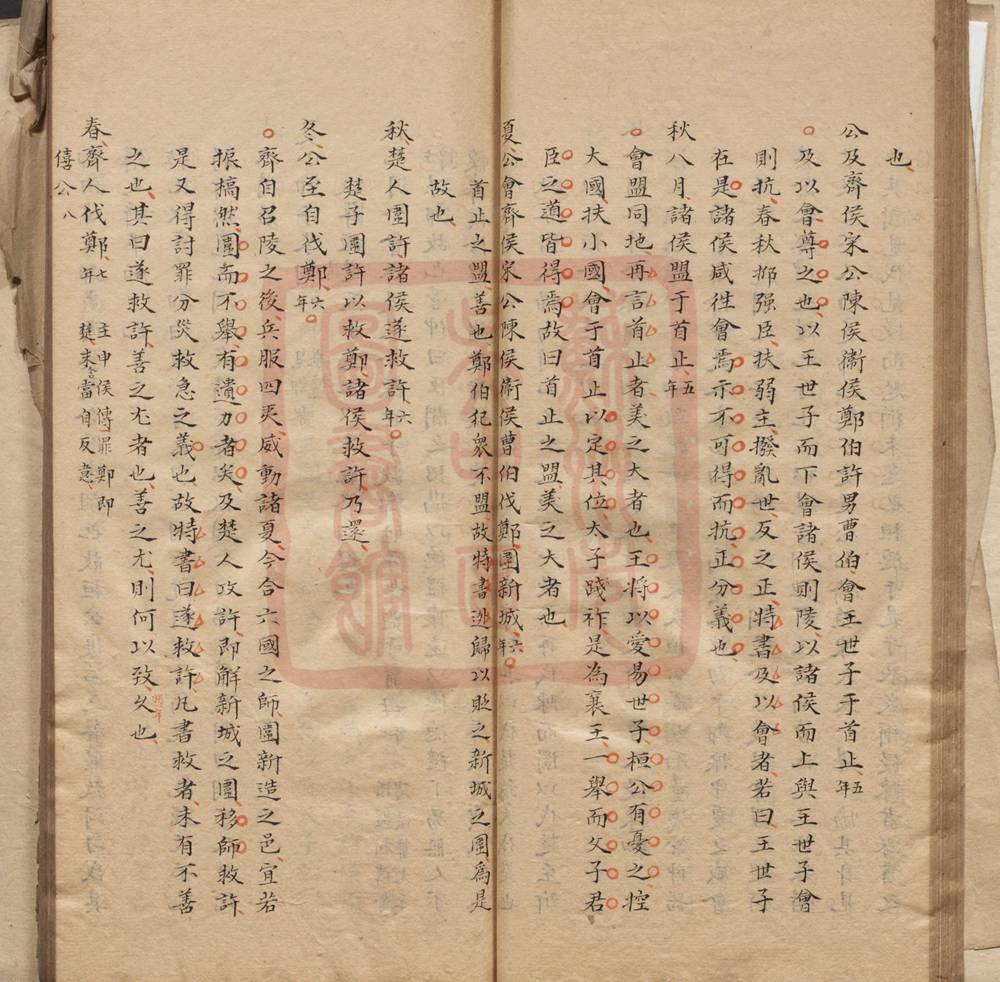 也
公及齊侯宋公陳侯衞侯鄭伯許男曹伯會王世子于首止五年
及以會尊之也以王世子而下會諸侯則陵以諸侯而上與王世子會
則抗春秋抑强臣扶弱主撥亂世反之正特書及以會者若曰王世子
在是諸侯咸徃會焉示不可得而抗正分義也
秋八月諸侯盟于首止五年
會盟同地再言首止者美之大者也王將以愛易世子桓公有憂之控
大國扶小國會于首止以定其位太子踐祚是為襄王一舉而父子君
臣之道皆得焉故曰首止之盟美之大者也
夏公會齊侯宋公陳侯衞侯曹伯伐鄭圍新城六年
首止之盟善也鄭伯犯衆不盟故特書逃歸以貶之新城之圍爲是
故也
秋楚人圍許諸侯遂救許六年
楚子圍許以救鄭諸侯救許乃還
冬公至自伐鄭六年
齊自召陵之後兵服四夷威動諸夏今合六國之師圍新造之邑宜若
振槁然圍而不舉有遺力者矣及楚人攻許即解新城之圍移師救許
是又得討罪分災救急之義也故特書曰遂救許凡書救者未有不善
之也其曰遂救許善之尤者也善之尤則何以致久也
春齊人伐鄭七年 主申侯傳罪鄭即楚末言當自反意
僖公 八